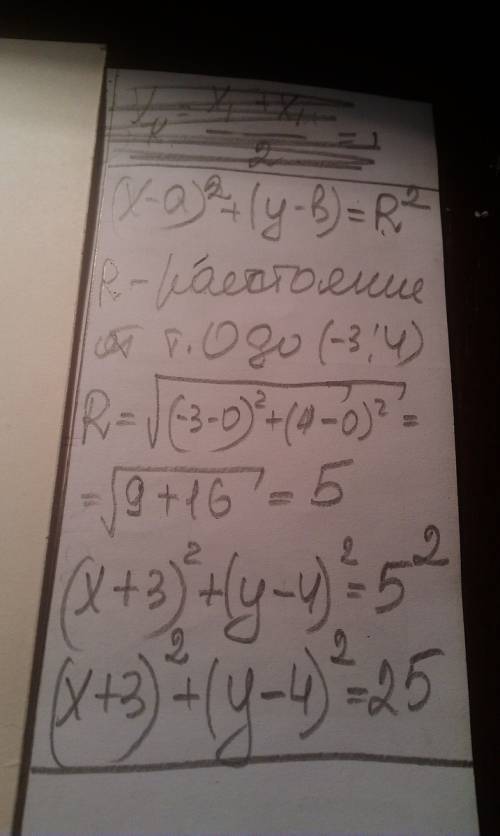 (x-a)²+(y-в)=R²
R-расстояние
от т. О до (-3; 4)
R=√(-3-0)²+(4-0)²=
=√9+16=5
(x+3)²+(y-4)²=5²
(x+3)²+(y-4)²=25